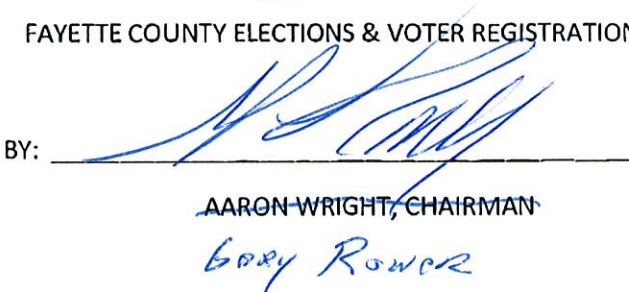 FAYETTE COUNTY ELECTIONS & VOTER REGISTRATION
BY:
AARON WRIGHT, CHAIRMAN
Gary Rower